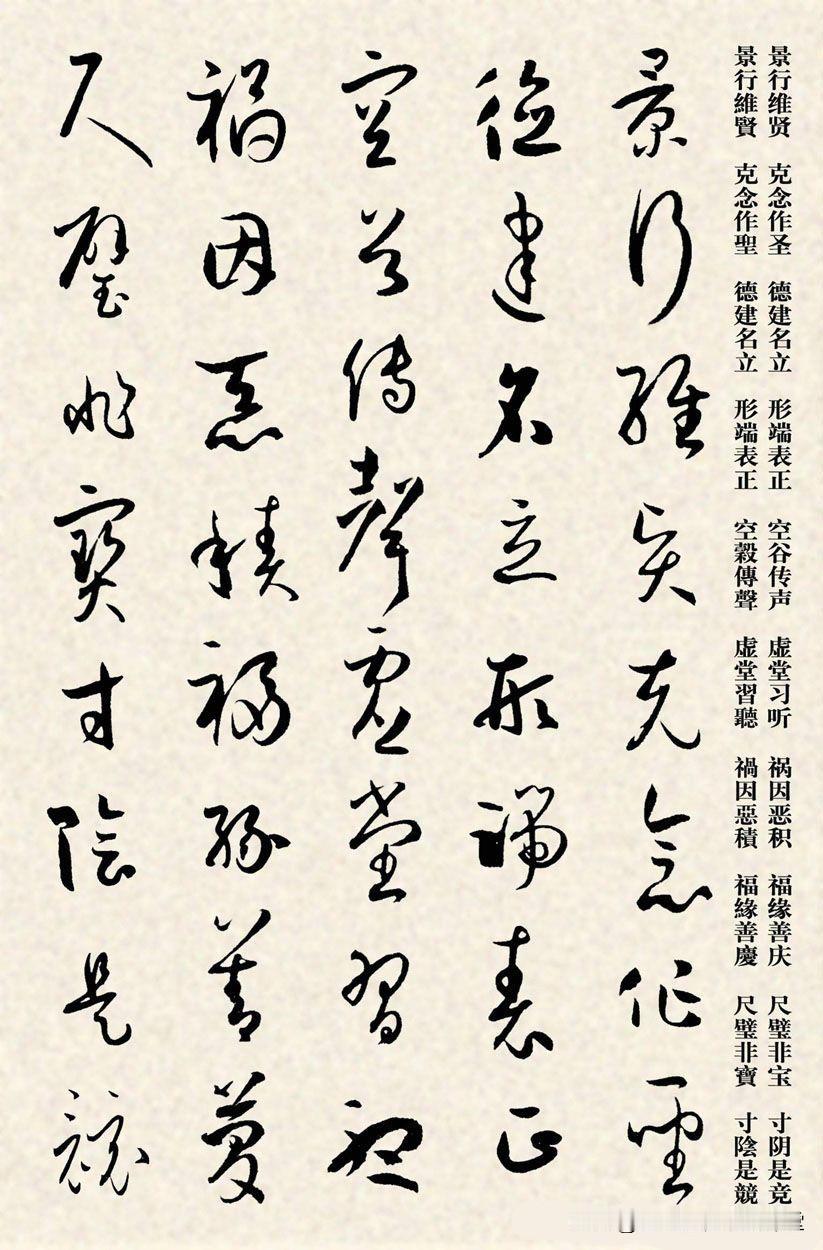 景行维贤 克念作圣 德建名立 形端表正 空谷传声 虚堂习听 祸因恶积 福缘善庆 尺璧非宝 寸阴是竞
景行維賢 克念作聖 德建名立 形端表正 空穀傳聲 虚堂習聽 禍因惡積 福緣善慶 尺璧非寶 寸陰是競
景行維賢克念作聖
德建名立形端表正
空谷傳聲虚堂習聽
禍因惡積福緣善慶
尺璧非寶寸陰是競